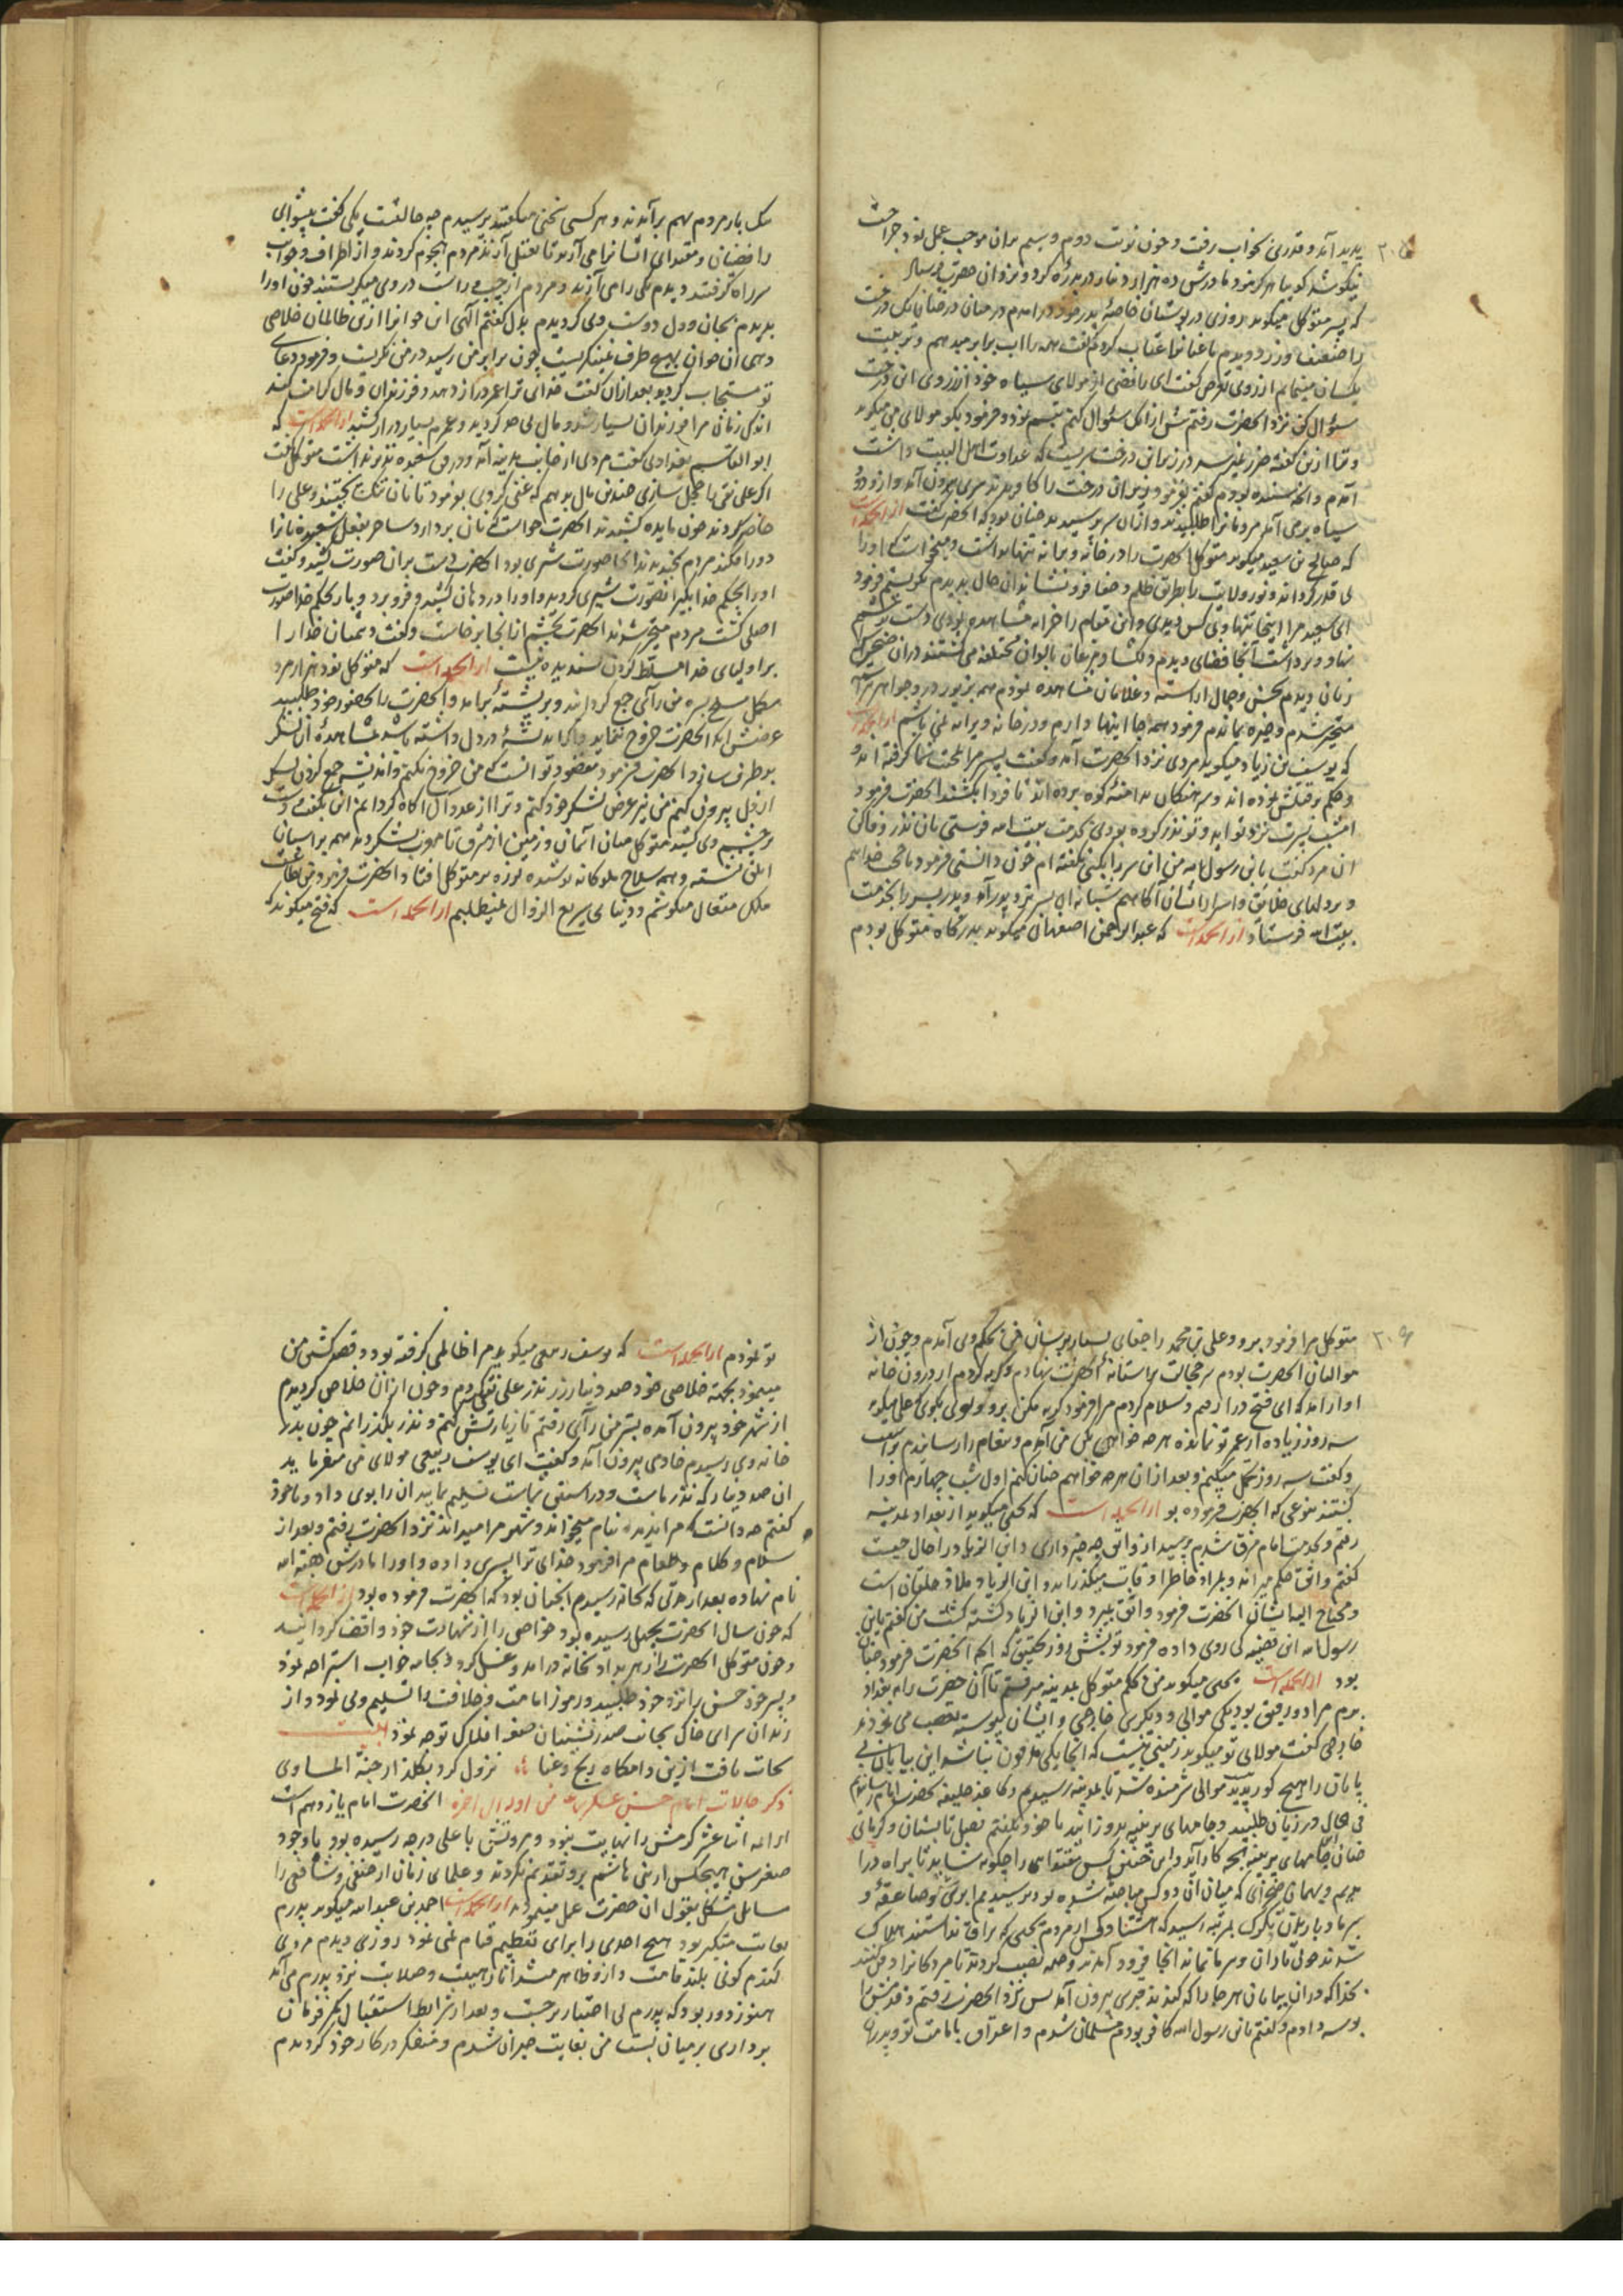 ۲۰۵
پدید آمد و قدری بخواب رفت و چون نوبت دوم و سیم بران موجب عمل نمود جراحت
نیکو شد مادرش ده هزار دینار در بدره کرد و نزد آن حضرت
که پسر متوکل میگوید روزی در بوستان خاصهٔ پدر خود درامدم درمیان درختان یک درخت
را ضعیف و زرد دیدم باغبانرا عتاب کردم گفت همه را آب برابر میدهم و تربیت
یکسان مینمایم از روی تعرض گفت ای رافضی از مولای سیاه خود از زردی این درخت
سؤال کن نزد انحضرت رفتم پیش از انکه سؤال کنم تبسم نمود و فرمود بگو مولای من میگوید
درخت سریست که عداوت اهل البیت داشت
آمدم و گفتم بفرمود زیر آن درخت را کاویدند سری بیرون آمد
سیاه پرسیدند چنان بود که انحضرت گفت از انجمله است
که صالح بن سعید میگوید متوکل انحضرت را در خانهٔ ویرانه تنها بداشت و میخواست که او را
بی قدر گرداند و نور ولایت را بطریق ظلم و جفا فرو نشاند آن حال بدیدم بگریستم فرمود
ای سعید مرا اینجا تنها و بی کس دیدی و این مقام را خرابه مشاهده نمودی دست بر چشمم
نهاد و برداشت آنجا فضای دیدم دلگشا و مرغان بالوان مختلفه می گشتند دران
زنان دیدم بحسن و جمال آراسته و غلامان مشاهده نمودم همه بزیور در و جواهر
متحیر شدم و خیره بماندم فرمود همه جا اینها دارم و در خانه ویرانه نمی باشم از انجمله است
که یوسف بن زیاد میگوید مردی نزد انحضرت آمد و گفت پسر مرا بمحبت شما گرفته اند
و حکم بر قتلش نموده اند و سرهنگان بدامنهٔ کوه برده اند تا فردا بکشند انحضرت فرمود
امشب پسرت نزد تو آید و تو نذر کرده بودی بخدمت بیت الله فرستی بآن نذر وفا کن
آن مرد گفت یا بن رسول الله من این سر با کسی نگفته ام چون دانستی فرمود ما محب خداییم
و بر دلهای خلائق و اسرار ایشان آگاهیم شبانه آن پسر نزد پدر آمد و پدر پسر را بخدمت
بیت الله فرستاد از انجمله است که عبد الرحمن اصفهانی میگوید بدرگاه متوکل بودم
یک بار مردم بهم برآمدند و هر کسی سخنی میگفتند پرسیدم چه حالتست یکی گفت پیشوای
رافضیان و مقتدای ایشانرا می آرند تا بقتل آرند مردم هجوم کردند و از اطراف و جوانب
سر راه گرفتند دیدم یکی را می آرند و مردم از چپ و راست در وی مینگریستند چون او را
بدیدم بجان و دل دوست وی گردیدم بدل گفتم الهی این جوانرا ازین ظالمان خلاصی
دهی آن جوان بهیچ طرف نمینگریست چون برابر من رسید در من نگریست و فرمود دعای
تو مستجاب گردید بعد ازان گفت خدای ترا عمر دراز دهد و فرزندان و مال کرامت کند
اندک زمانی مرا فرزندان بسیار شد و مال بی حد گردید و عمرم بسیار دراز کشید از انجمله است که
ابو القاسم بغدادی گفت مردی از جانب هند آمد و در فن شعبده نظیر نداشت متوکل گفت
اگر علی نقی را خجل سازی چندین مال بدهم که غنی گردی بفرمود تا نان تنک بپختند و علی را
حاضر کردند چون مایده کشیدند انحضرت خواست که نان بردارد ساحر بفعل شعبده نانرا
دور افکند مردم بخندیدند انجا صورت شیری بود انحضرت دست بران صورت کشید و گفت
او را بحکم خدا بگیر آن صورت شیری گردید و او را در دهان کشید و فرو برد و باز بحکم خدا صورت
اصلی گشت مردم متحیر شدند انحضرت بخشم از انجا برخاست و گفت دشمنان خدا را
بر اولیای خدا مسلط کردن پسندیده نیست از انجمله است که متوکل نود هزار مرد
مکمل مسلح بسر من رأی جمع گردانید و بر پشتهٔ برآمد و انحضرت را بحضور خود طلبید
غرضش انکه انحضرت خروج ننماید و اگر اندیشهٔ در دل داشته باشد بمشاهدهٔ آن لشکر
بر طرف سازد انحضرت فرمود مقصود تو انست که من خروج نکنم و اندیشه جمع کردن لشکر
از دل بیرون کنم من نیز عرض لشکر خود کنم و ترا از عدد آن آگاه گردانم این بگفت و دست
بر چشم وی کشید متوکل میان آسمان و زمین از مشرق تا مغرب لشکر دید همه بر اسپان
ابلق نشسته و همه سلاح ملوکانه پوشیده لرزه بر متوکل افتاد انحضرت فرمود من بطاعت
ملک متعال میکوشم و دنیای سریع الزوال نمیطلبم از انجمله است که فتح میگوید که
۲۰۶
متوکل مرا فرمود برو و علی بن محمد را جفای بسیار برسان من بحکم وی آمدم و چون از
موالیان انحضرت بودم سر خجالت بر آستانهٔ انحضرت نهادم و گریه کردم از درون خانه
آواز آمد که ای فتح درآ درامدم و سلام کردم مرا فرمود گریه مکن برو و بگوی که علی میگوید
سه روز زیاده از عمر تو نمانده هر چه خواهی بکن من آمدم و پیغام را رسانیدم
و گفت سه روز تحمل میکنم و بعد ازان هر چه خواهم چنان کنم اول شب چهارم او را
بکشتند بنوعی که انحضرت فرموده بود از انجمله است که یحیی میگوید از بغداد بمدینه
رفتم و بخدمت امام مشرف شدم پرسید از واثق چه خبر داری و ابن الزیاد را حال چیست
گفتم واثق حکم میراند و بمراد خاطر اوقات میگذراند و ابن الزیاد ملاذ خلقان است
و محتاج الیه ایشان انحضرت فرمود واثق بمرد و ابن الزیاد کشته گشت من گفتم یا بن
رسول الله این قضیه کی روی داده فرمود تو شش روز تحقیق که انچه انحضرت فرمود چنان
بود از انجمله است یحیی میگوید من بحکم متوکل بمدینه میرفتم تا آن حضرت را به بغداد
برم مرا دو رفیق بود یکی موالی و دیگری خارجی و ایشان پیوسته تعصب می نمودند
خارجی گفت مولای تو میگوید زمینی نیست که انجا یکی مدفون نباشد این بیابان بی
پایان را هیچ گور پدید موالی شرمنده شد تا بمدینه رسیدیم و کاغذ خلیفه بحضرت امام رسانیدیم
فی الحال درزیان طلبید و جامهای پر پنبه بدوزانید با خود گفتم فصل تابستان و گرمای
چنان جامهای پر پنبه بچه کار آید و این چنین کس مقتدایی را چگونه شاید تا براه درا
مدیم و بهمان صحرای که میان آن دو کس مباحثه شده بود برسیدیم ابری و صاعقهٔ و
سرما و باریدن تگرگ بمرتبهٔ رسید که هشتاد کس از مردم یحیی که یراق نداشتند هلاک
شدند چون باران و سرما نماند انجا فرود آمدند و خیمه نصب کردند تا مردگانرا دفن کنند
بخدا که دران بیابان هر جا را که کندند قبری بیرون آمد پس نزد انحضرت رفتم و قدمش را
بوسه دادم و گفتم یا بن رسول الله کافر بودم مسلمان شدم و اعتراف بامامت تو و پدران
تو نمودم از انجمله است که یوسف ربیعی میگوید مرا ظالمی گرفته بود و قصد کشتن من
مینمود بجهة خلاصی خود صد دینار زر نذر علی نقی کردم و چون از زندان خلاصی گردیدم
از شهر خود بیرون آمده بسر من رأی رفتم تا زیارتش کنم و نذر بگذرانم چون بدر
خانه وی رسیدم خادمی بیرون آمد و گفت ای یوسف ربیعی مولای من میفرماید
آن صد دینار که نذر ماست و در استین تست تسلیم نمای آن را بوی دادم و با خود
گفتم چه دانست که مرا بدین نام میخواند و شهر مرا میداند نزد انحضرت رفتم و بعد از
سلام و کلام و طعام مرا فرمود خدای ترا پسری داده و او را مادرش هبة الله
نام نهاده بعد از مدتی که بخانه رسیدم انچنان بود که انحضرت فرموده بود از انجمله است
که چون سال انحضرت بچهل رسیده بود خواص را از شهادت خود واقف گردانید
و چون متوکل انحضرت را زهر بداد بخانه درامد و غسل کرد و بجامه خواب استراحه نمود
و پسر خود حسن را نزد خود طلبید و رموز امامت و خلافت را تسلیم وی نمود و از
زندان سرای خاک بجانب صدرنشینان صفهٔ افلاک توجه نمود بیت
نجات یافت ازین دامگاه رنج و عنا نزول کرد بگلزار جنة الماوی
ذکر حالات امام حسن عسکری من اوله الی اخره انحضرت امام یازدهم است
از ائمه اثنا عشر کرمش را نهایت نبود و مروتش با علی درجه رسیده بود با وجود
صغر سن هیچکس از بنی هاشم برو تقدیم نکردند و علمای زمان از حنفی و شافعی را
مسایل مشکل بقول آن حضرت عمل مینمودند از انجمله است احمد بن عبد الله میگوید پدرم
بغایت متکبر بود هیچ احدی را برای تعظیم قیام نمی نمود روزی دیدم مردی
گندم گونی بلند قامت و ازو ظاهر میشد آثار هیبت و صلابت نزد پدرم می آمد
هنوز دور بود که پدرم بی اختیار برجست و بعد از شرایط استقبال کمر فرمان
برداری بر میان بست من بغایت حیران شدم و متفکر در کار خود گردیدم